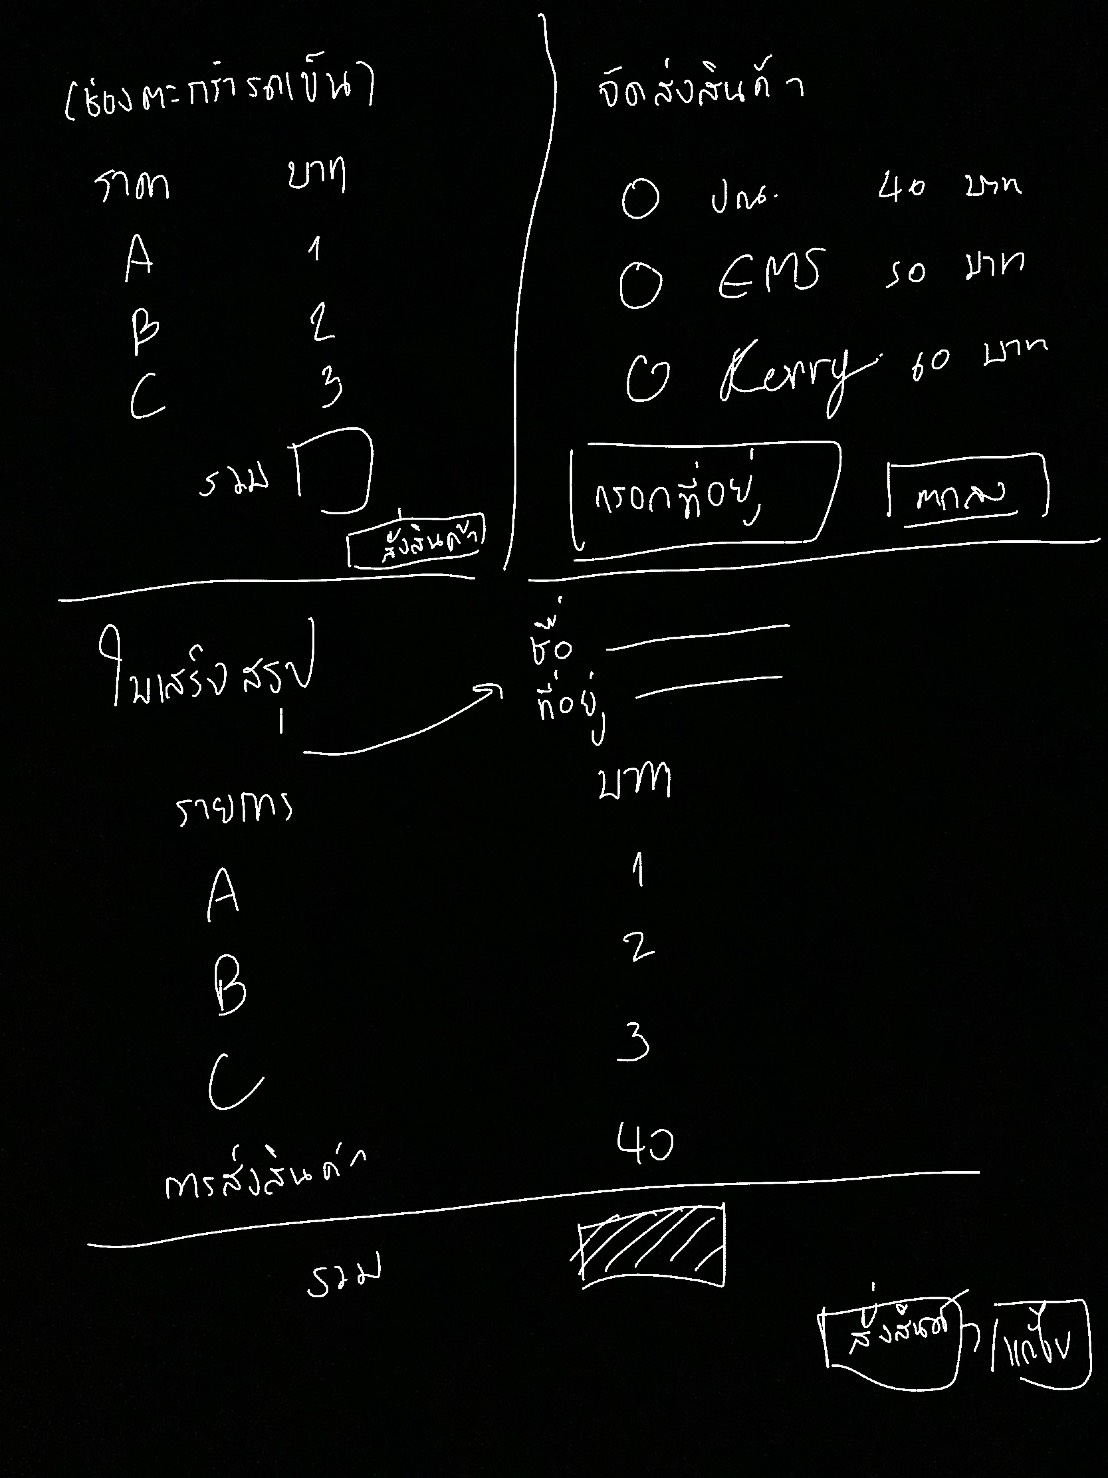 (ช่องตะกร้ารถเข็น)
ราคา บาท
A 1
B 2
C 3
รวม
สั่งสินค้า
จัดส่งสินค้า
ปณ. 40 บาท
EMS 50 บาท
Kerry 60 บาท
กรอกที่อยู่ ตกลง
ใบเสร็จสรุป
ชื่อ
ที่อยู่
รายการ บาท
A 1
B 2
C 3
การส่งสินค้า 40
รวม
สั่งสินค้า แก้ไข